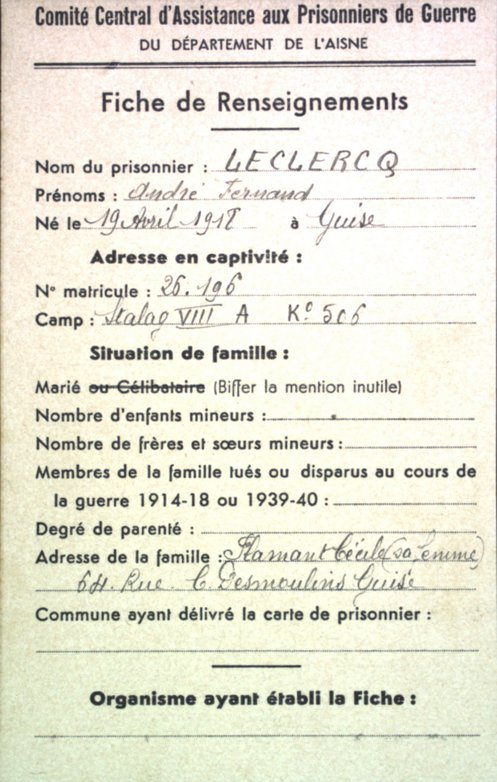 Comité Central d'Assistance aux Prisonniers de Guerre
DU DÉPARTEMENT DE L'AISNE
Fiche de Renseignements
Nom du prisonnier : LECLERCQ
Prénoms : André Fernand
Né le 19 Avril 1918 à Guise
Adresse en captivité :
N° matricule : 26.196
Camp : Stalag VIII A K° 506
Situation de famille :
Marié ou Célibataire (Biffer la mention inutile)
Nombre d'enfants mineurs :
Nombre de frères et sœurs mineurs :
Membres de la famille tués ou disparus au cours de
la guerre 1914-18 ou 1939-40 :
Degré de parenté :
Adresse de la famille : Flamant Cécile (sa femme)
64. Rue. C. Desmoulins Guise
Commune ayant délivré la carte de prisonnier :
Organisme ayant établi la Fiche :